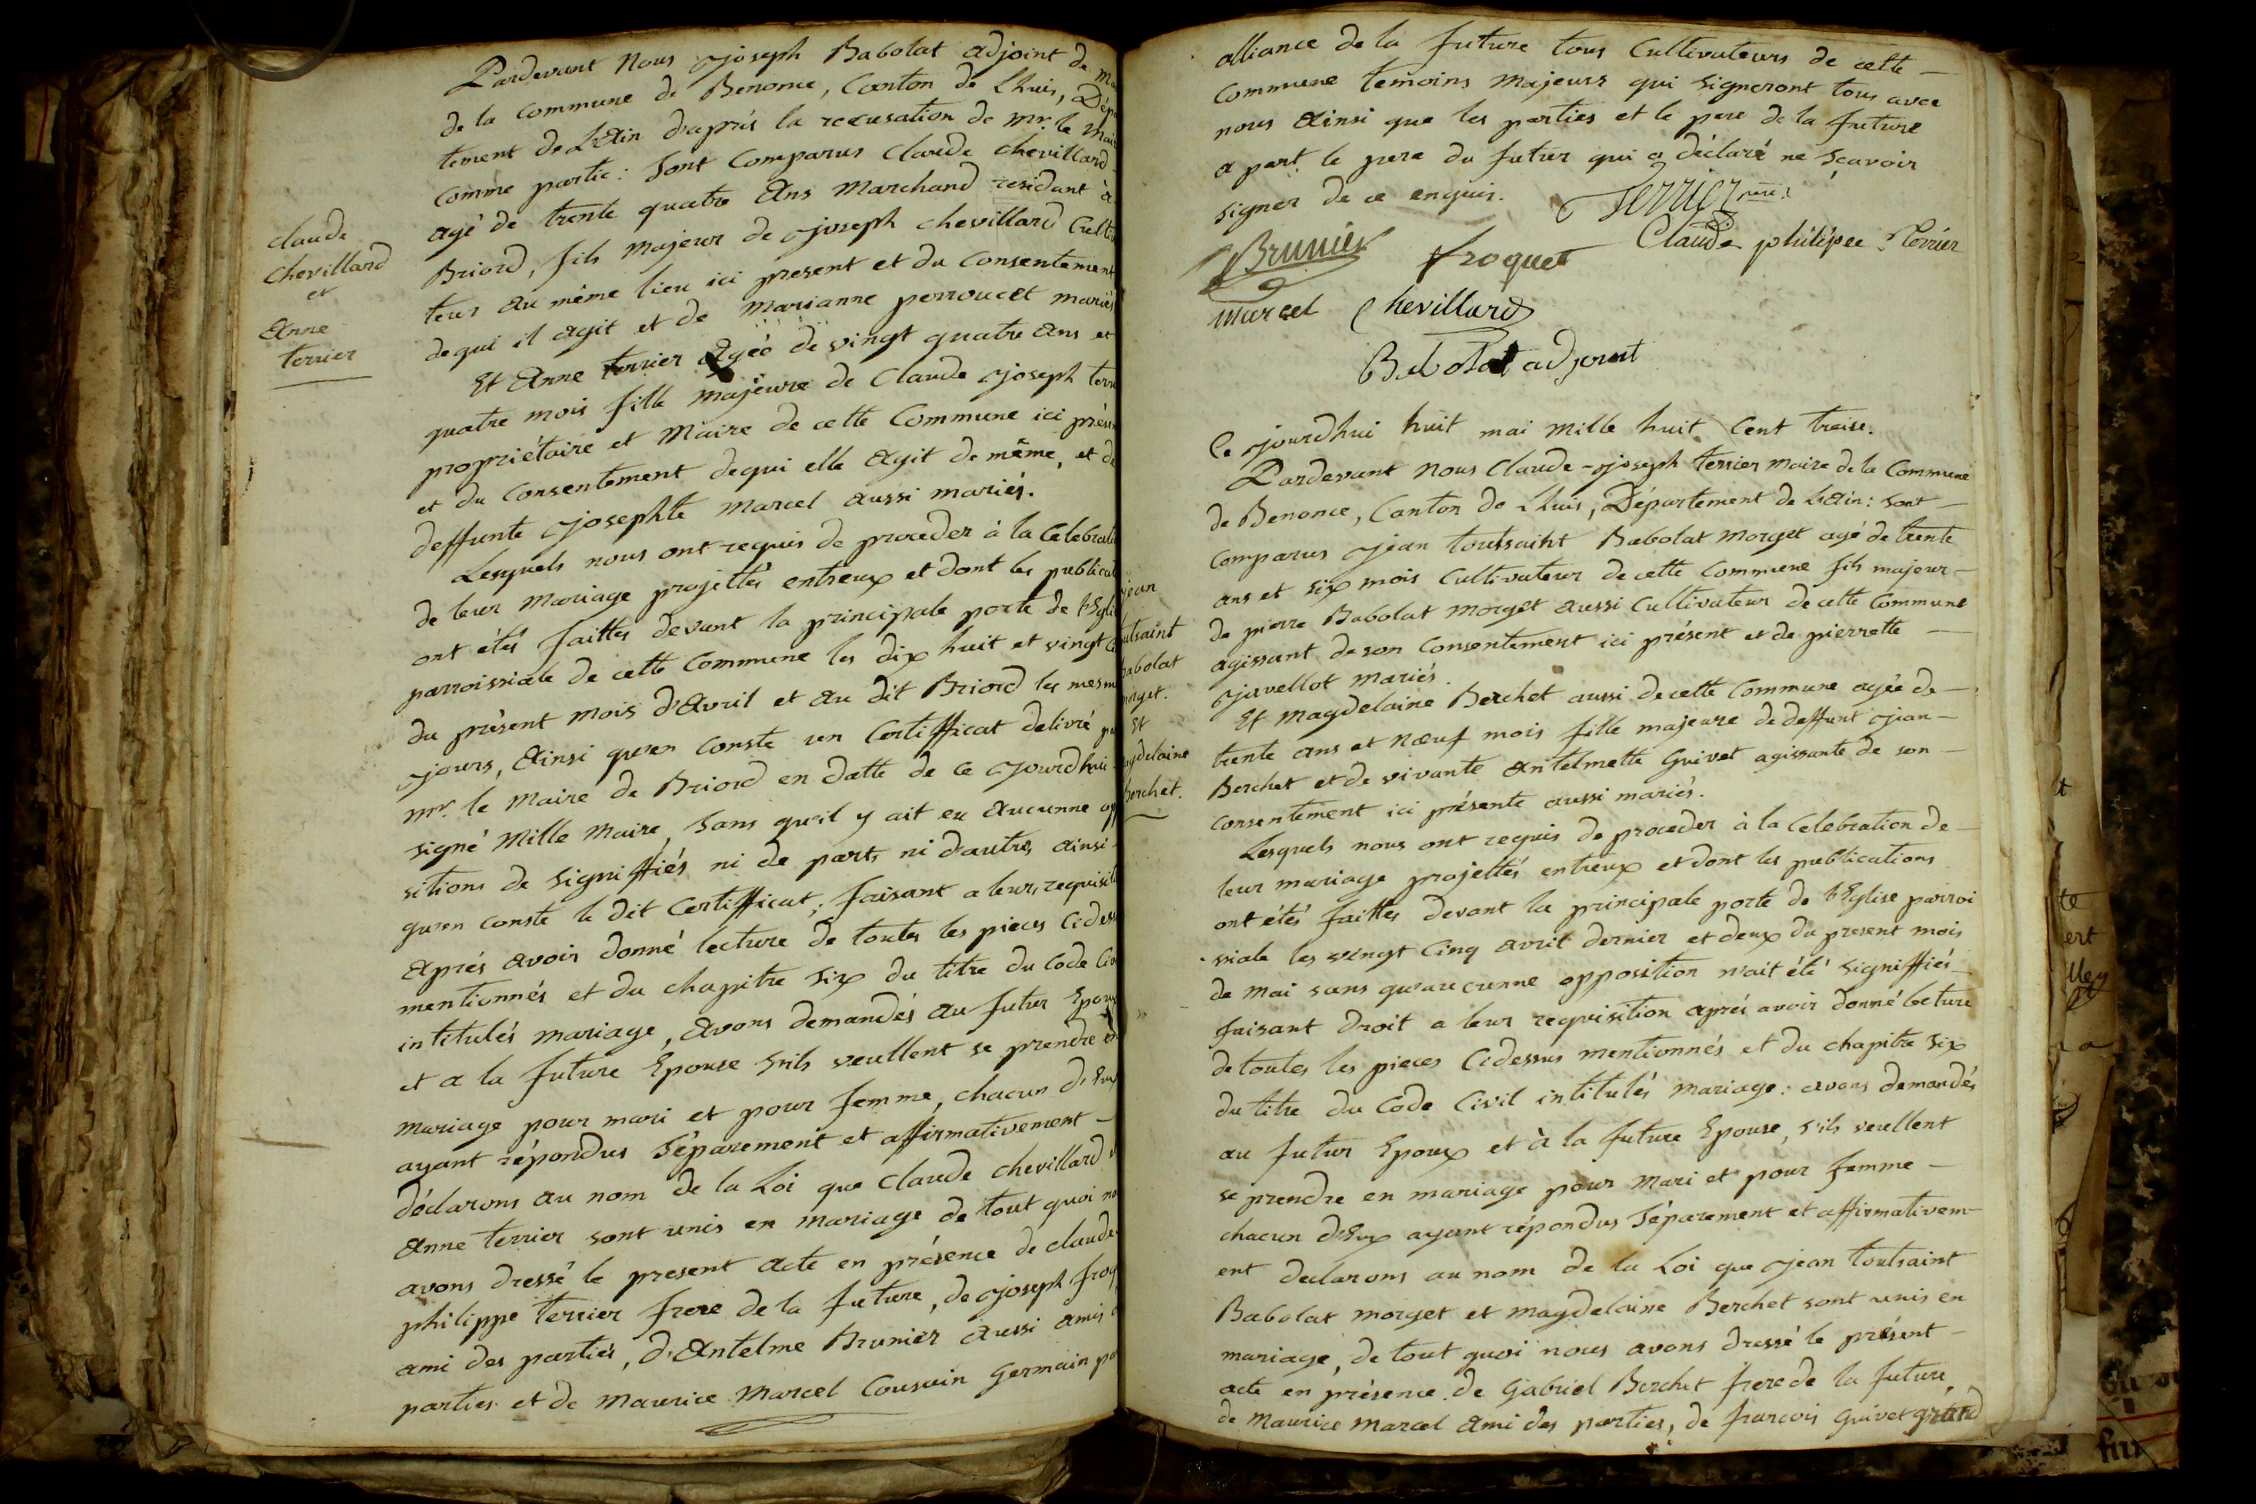 Pardevant Nous Joseph Babolat adjoint de
de la Commune de Benonce, Canton de Lhuis, Dép
tement de L'Ain d'aprés la recusation de Mr. le Mai
Comme partie: Sont Comparus Claude Chevillard
agé de trente quatre Ans Marchand residant à
Briord, fils majeur de Joseph Chevillard Culti
teur au même lieu ici present et du Consentement
de qui il agit et de Marianne perroucet mariés
Claude
Chevillard
et
Anne
terrier
Et Anne terrier Agée de vingt quatre Ans et
quatre mois fille majeure de Claude Joseph terri
propriétaire et Maire de cette Commune ici prése
et du Consentement de qui elle Agit de même, et de
deffunte Josephte Marcel aussi mariés.
Lesquels nous ont requis de proceder à la Celebrati
de leur Mariage projettés entreux et dont les publicat
ont étés faittes devant la principale porte de l'Egli
parroissiale de cette Commune les dix huit et vingt
du présent mois d'Avril et au dit Briord les mesm
jours, Ainsi qu'en Conste un Certifficat delivré pa
Mr. le Maire de Briord en datte de ce jourd'hui
signé Mille Maire, Sans qu'il y ait eu Aucunne op
sitions de signiffiés ni de parts ni d'autres ainsi
qu'en conste le dit Certifficat; faisant a leurs requisiti
Aprés avoir donné lecture de toutes les pieces Cidess
mentionnés et du chapitre six du titre du Code Civ
intitulés mariage, Avons demandés Au futur Epou
et a la future Epouse s'ils veullent se prendre en
mariage pour mari et pour femme, chacun d'Eux
ayant répondus Séparement et affirmativement -
déclarons au nom de la Loi que Claude Chevillard
Anne terrier sont unis en mariage de tout quoi no
avons dressé le present Acte en présence de Claude
philippe terrier frere de la future, de Joseph frog
ami des partiés, d'Antelme Brunier aussi amis
parties et de Maurice Marcel Cousuin Germain pa
alliance de la future tous Cultivateurs de cette -
Commune temoins Majeurs qui signeront tous avec
nous Ainsi que les parties et le pere de la future
a part le pere du futur qui a déclaré ne sçavoir
signer de ce enquis.
Terrier
Brunier
froquet
Claude philipee Terrier
Marcel
Chevillard
Babolat adjoint
Ce jourdhui huit mai Mille huit Cent treise.
Pardevant Nous Claude-Joseph terrier Maire de la Commune
de Benonce, Canton de Lhuis, Département de L'Ain: Sont -
Comparus Jean toussaint Babolat Morget agé de trente
ans et six mois Cultivateur de cette Commune fils majeur -
de pierre Babolat Morget aussi Cultivateur de cette Commune
agissant de son Consentement ici présent et de pierrette -
Javellot mariés.
jean
utsaint
babolat
morget.
Et
agdelaine
Berchet.
Et Magdelaine Berchet aussi de cette Commune agée de -
trente ans et nœuf mois fille majeure de deffunt Jean -
Berchet et de vivante Antelmette Guivet agissante de son -
consentement ici présente aussi mariés.
Lesquels nous ont requis de proceder à la Celebration de -
leur mariage projettés entreux et dont les publications
ont étés faittes devant la principale porte de l'Eglise parroi
ssiale les vingt Cinq avril dernier et deux du present mois
de Mai sans qu'aucunne opposition n'ait été signiffiés -
faisant droit a leur requisition aprés avoir donné lecture
de toutes les pieces Cidessus mentionnés et du chapitre six
du titre du Code Civil intitulés mariage: avons demandés
au futur Epoux et à la future Epouse, s'ils veullent
se prendre en mariage pour Mari et pour femme -
chacun d'Eux ayant répondus Séparement et affirmativem-
ent declarons au nom de la Loi que Jean toutsaint
Babolat morget et Magdelaine Berchet sont unis en
mariage, de tout quoi nous avons dressé le présent -
acte en présence de Gabriel Berchet frere de la future,
de Maurice Marcel Ami des parties, de francois Guivet grand